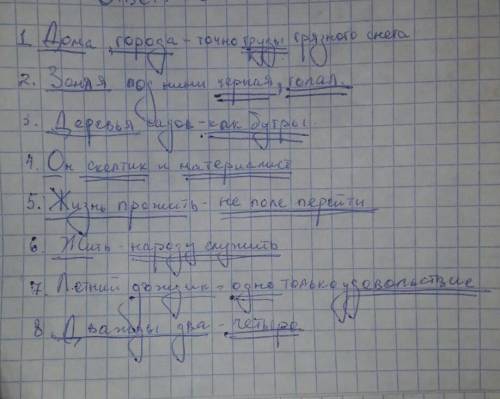 1. Дома города - точно груды грязного снега
2. Земля под ними черная, голая.
3. Деревья садов - как бугры
4. Он скептик и материалист
5. Жизнь прожить - не поле перейти
6. Жить - народу служить
7. Летний дождик - одно только удовольствие
8. Дважды два - четыре